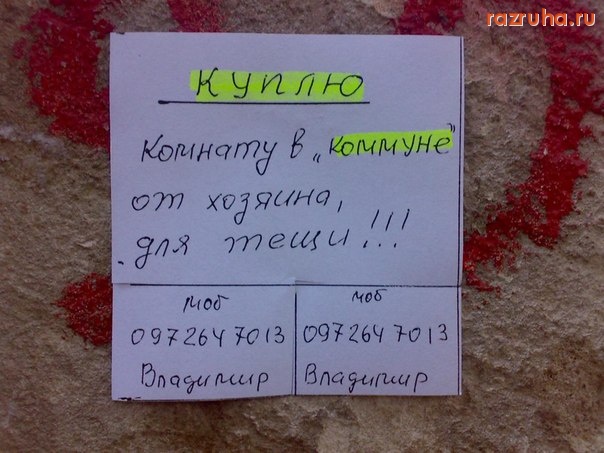 razruha.ru
КУПЛЮ
комнату в „коммуне"
от хозяина,
для тещи!!!
моб
0972647013
Владимир
моб
0972647013
Владимир